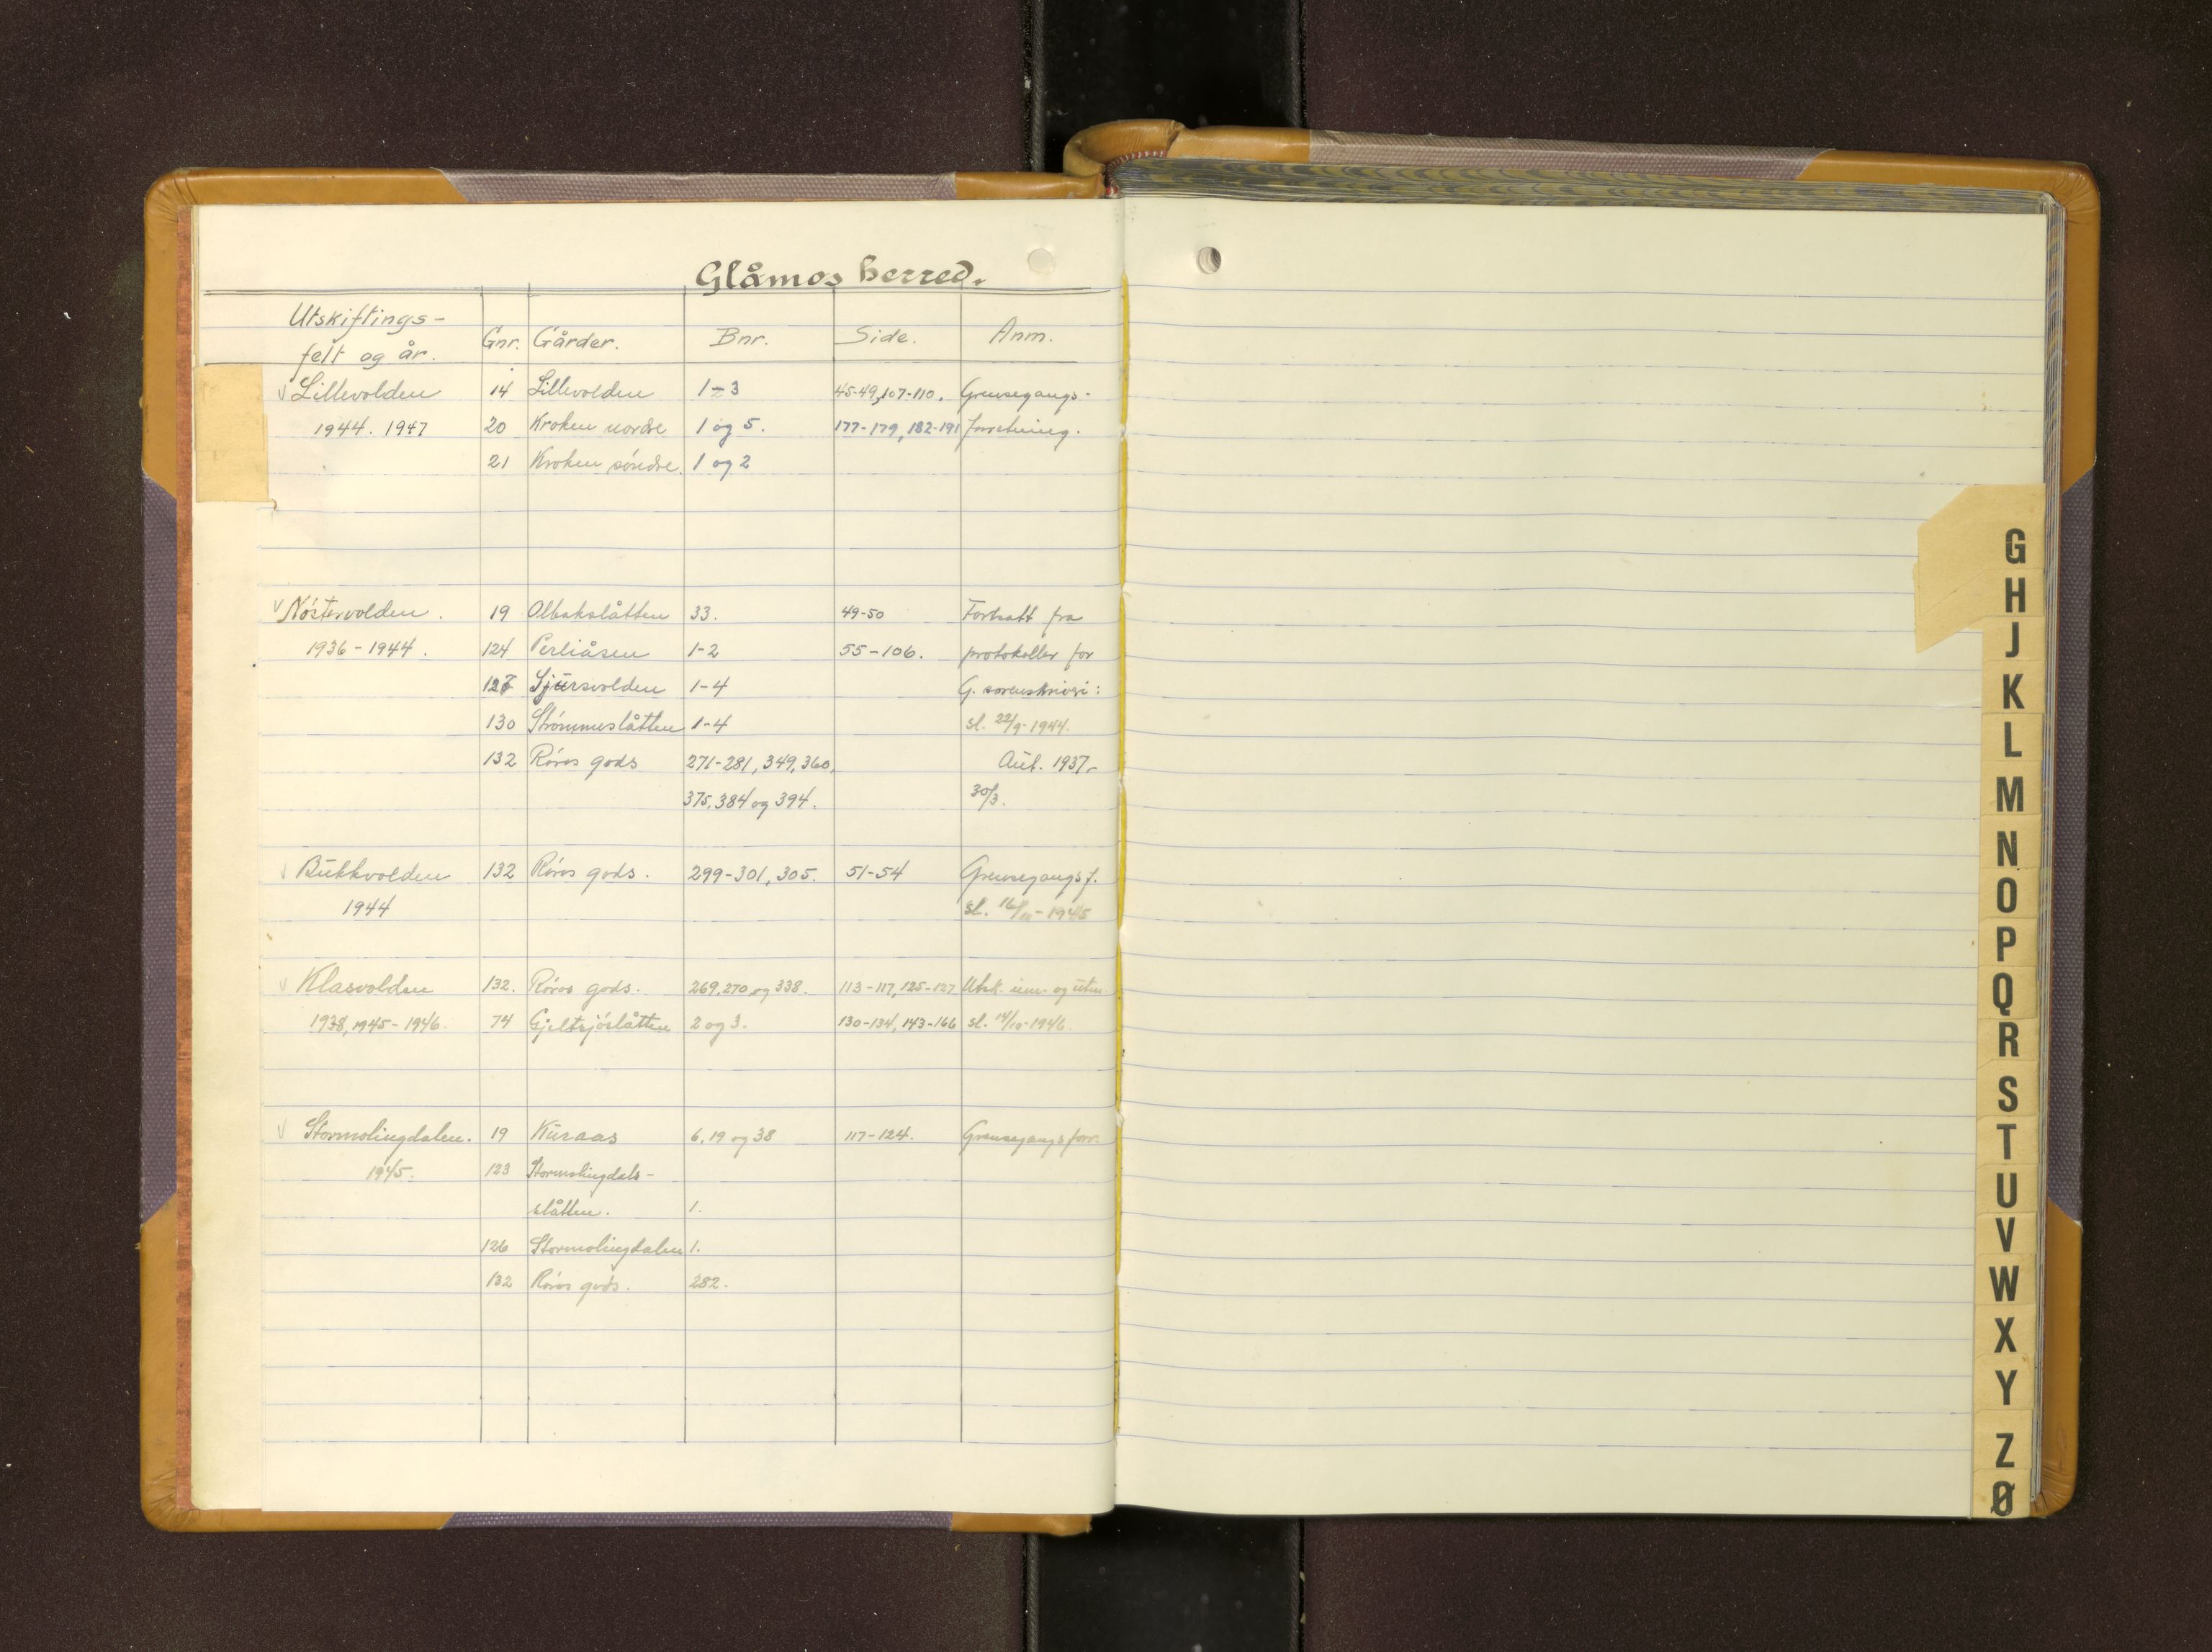 Glåmos herred.
Utskiftings-
felt og år. Gnr. Gårder. Bnr. Side. Anm.
√ Lillevolden 14 Lillevolden 1-3 45-49, 107-110. Grensegangs-
1944. 1947 20 Kroken nordre 1 og 5. 177-179, 182-191 forretning.
21 Kroken söndre. 1 og 2
√ Nöstervolden. 19 Olbakslåtten 33. 49-50 Fortsatt fra
1936-1944. 124 Perliåsen 1-2 55-106. protokoller for
127 Sjursvolden 1-4 G. sorenskriveri:
130 Strömmeslåtten 1-4 sl. 22/9-1944.
132 Röros gods 271-281, 349, 360, Aut. 1937-
375, 384 og 394. 30/3.
√ Bukkvolden 132 Röros gods. 299-301, 305. 51-54 Grensegangsf.
1944 sl. 16/10-1945
√ Klasvolden 132. Röros gods. 269, 270 og 338. 113-117, 125-127 Utsk. inn- og utm.
1938, 1945-1946. 74 Gjeltsjöslåtten 2 og 3. 130-134, 143-166 sl. 14/10-1946.
√ Stormolingdalen. 19 Kuraas 6, 19 og 38 117-124. Grensegangsforr.
1945. 123 Stormolingdals-
slåtten. 1.
126 Stormolingdalen 1.
132 Röros gods. 282.
G
H
J
K
L
M
N
O
P
Q
R
S
T
U
V
W
X
Y
Z
Ø